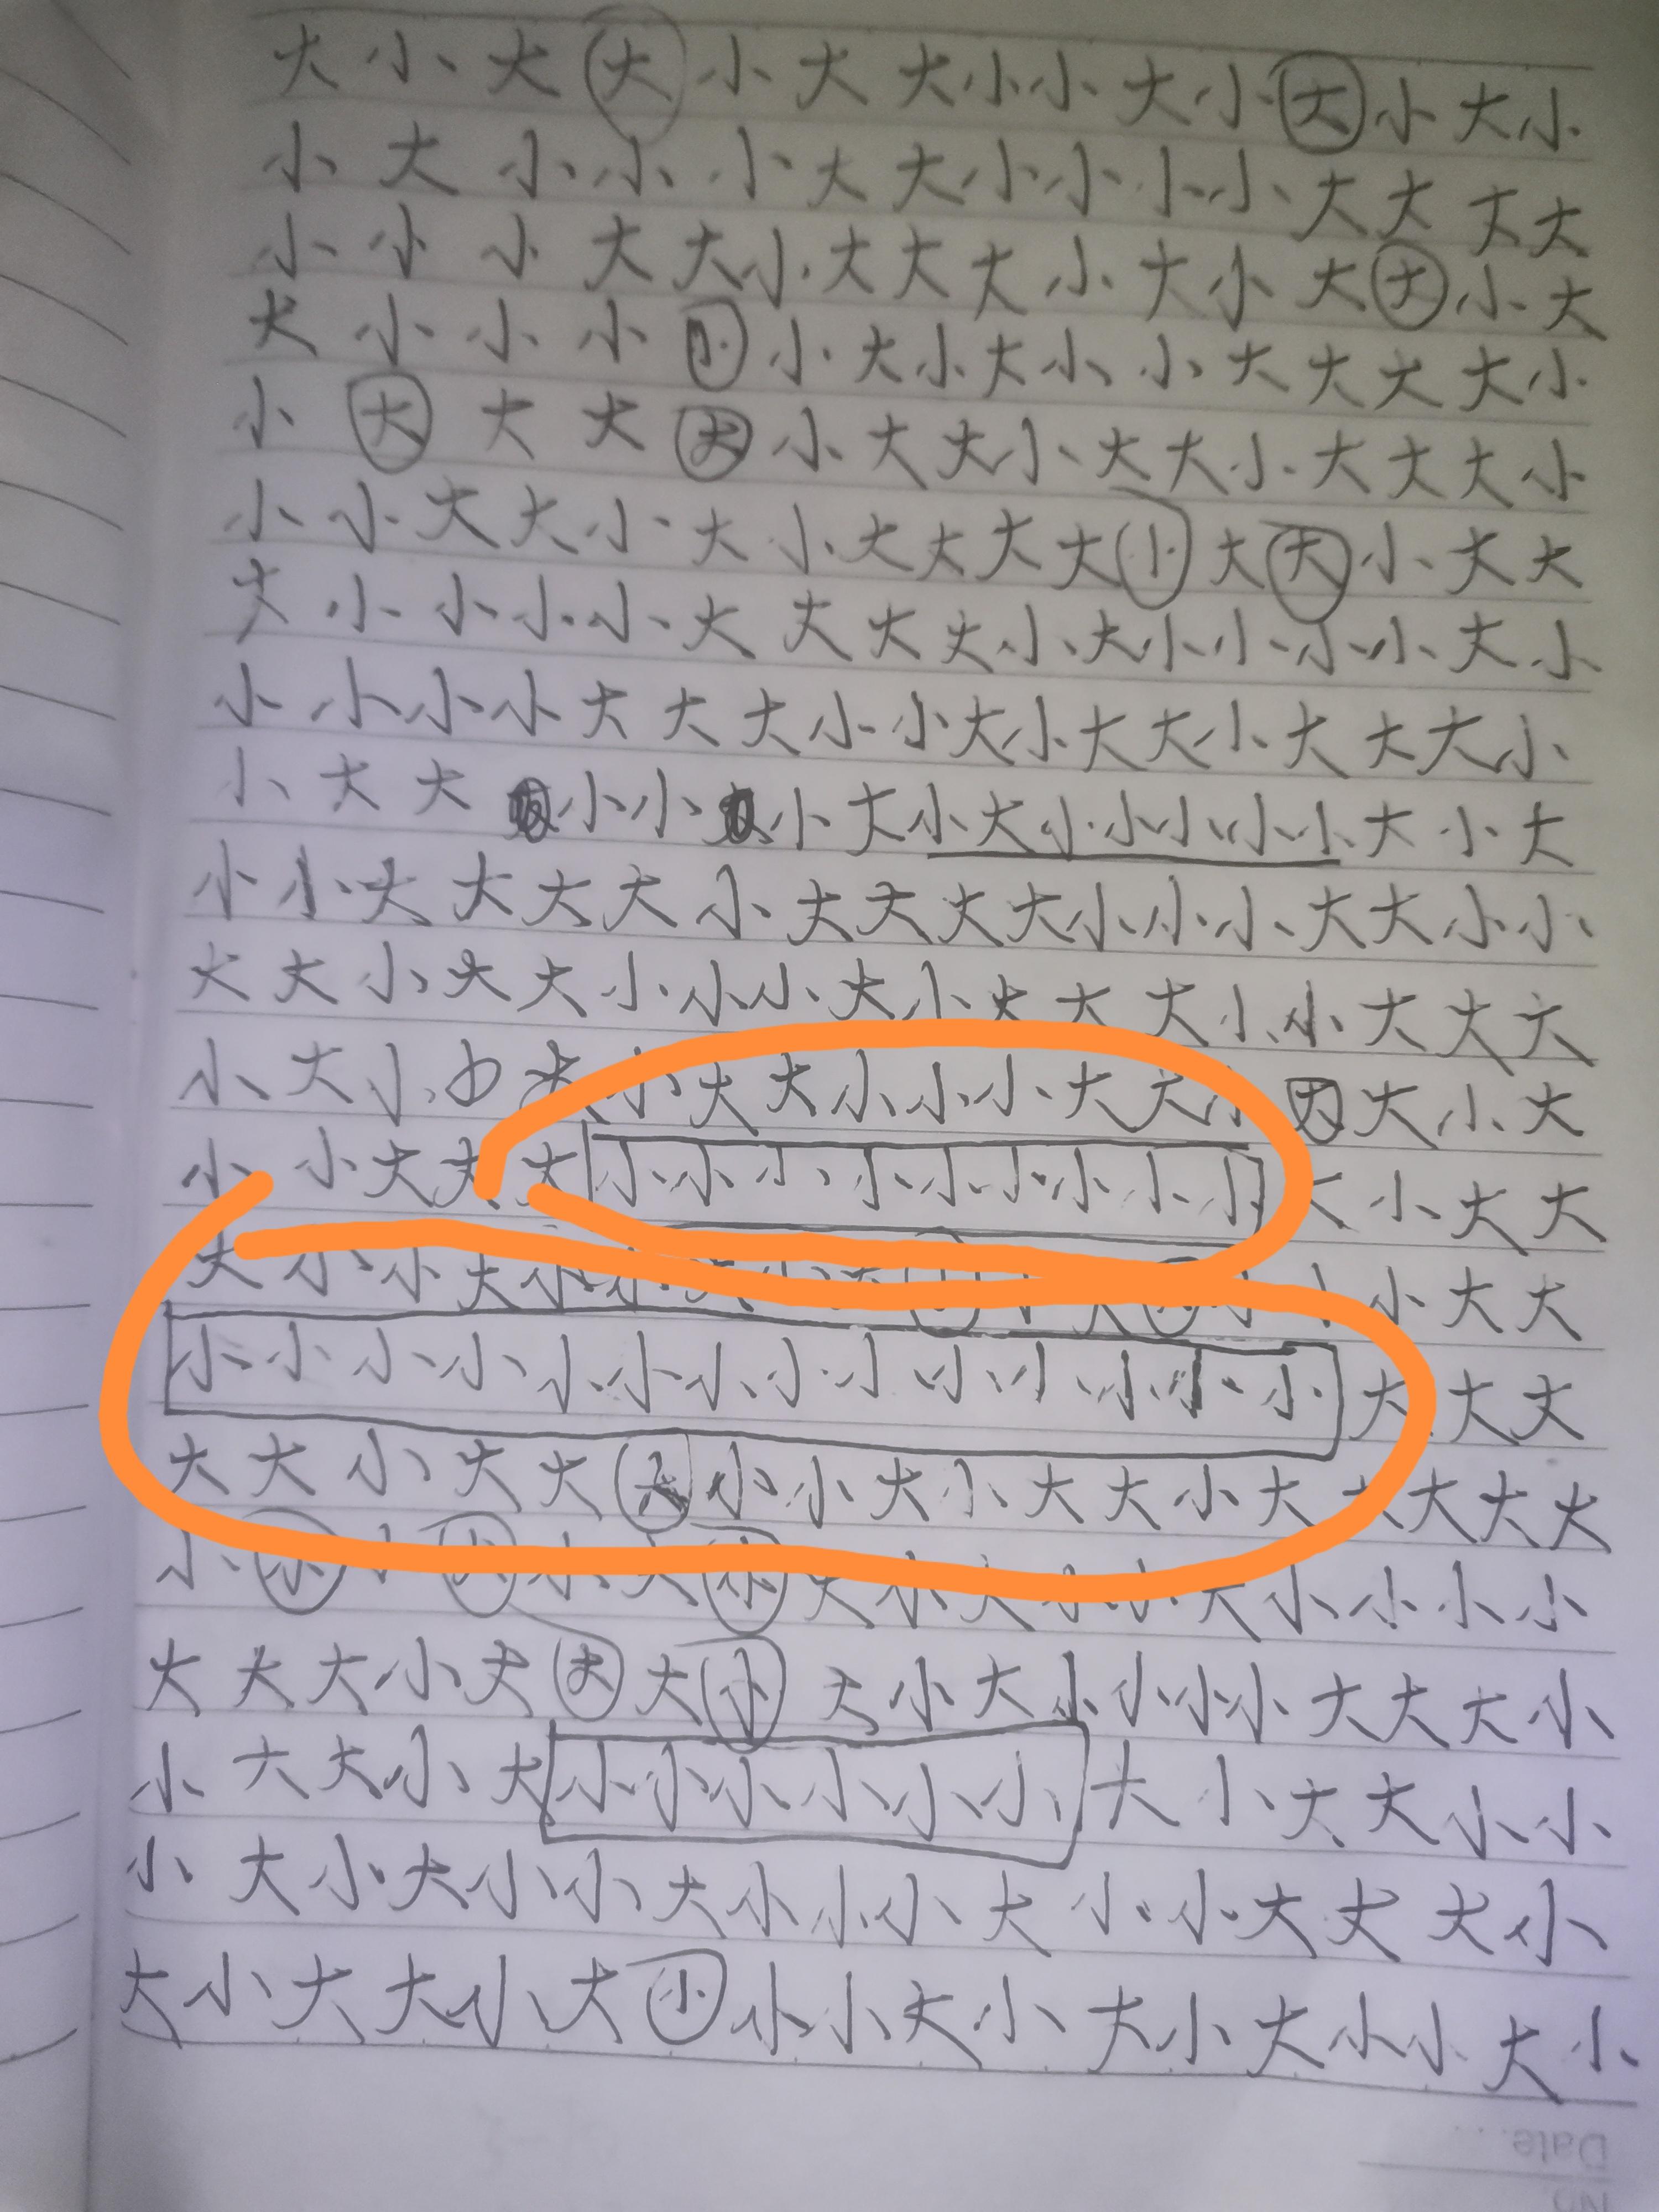 大小大大小大大小小大小大小大小
小大小小小大大小小小小大大大大
小小小大大小大大大小大小大大小大
大小小小小小大小大小小大大大大小
小大大大大小大大小大大小大大大小
小小大大小大小大大大大小大大小大大
大小小小小大大大大小大小小小小大小
小小小小大大大小小大小大大小大大大小
小大大小小小大小大小小小小小大小大
小小大大大大小大大大大小小小大大小小
大大小大大小小小大小大大大小小大大大
小大小大小大大小小小大大小大小大
小小大大大小小小小小小小小小大小大大
大小小大小小大小大小小大大
小小小小小小小小小小小小小小大大大
大大小大大大小小大小大大小大大大大大
小小小小大大小大小大小小大小小小小
大大大小大大大小大小大小小小小大大大小
小大大小大小小小小小小大小大大小小
小大小大小小大小小小大小小大大大小
大小大大小大小小小大小大小大小小大小
Date
No